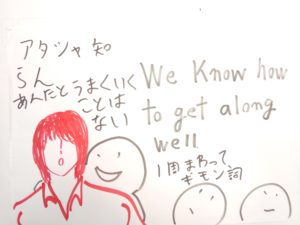 アタシャ知
らん
あんたとうまくいく
ことは
ない
We Know how
to get along
well
1周まわって
ギモン詞